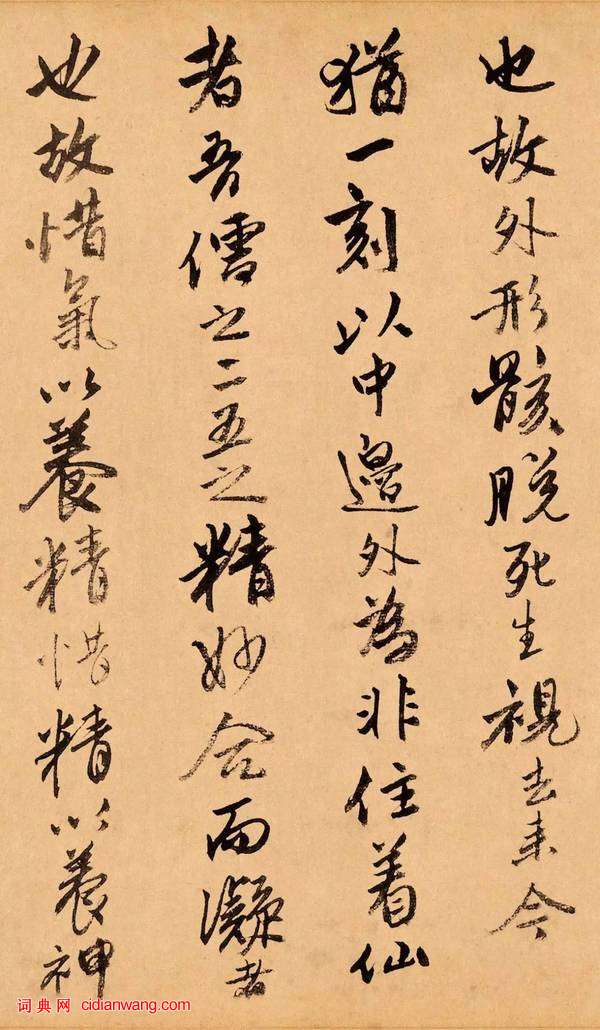 也故外形骸脱死生視去来今
猶一刻以中邊外為非住着仙
者吾儒之二五之精妙合而凝者
也故惜氣以養精惜精以養神
词典网 cidianwang.com